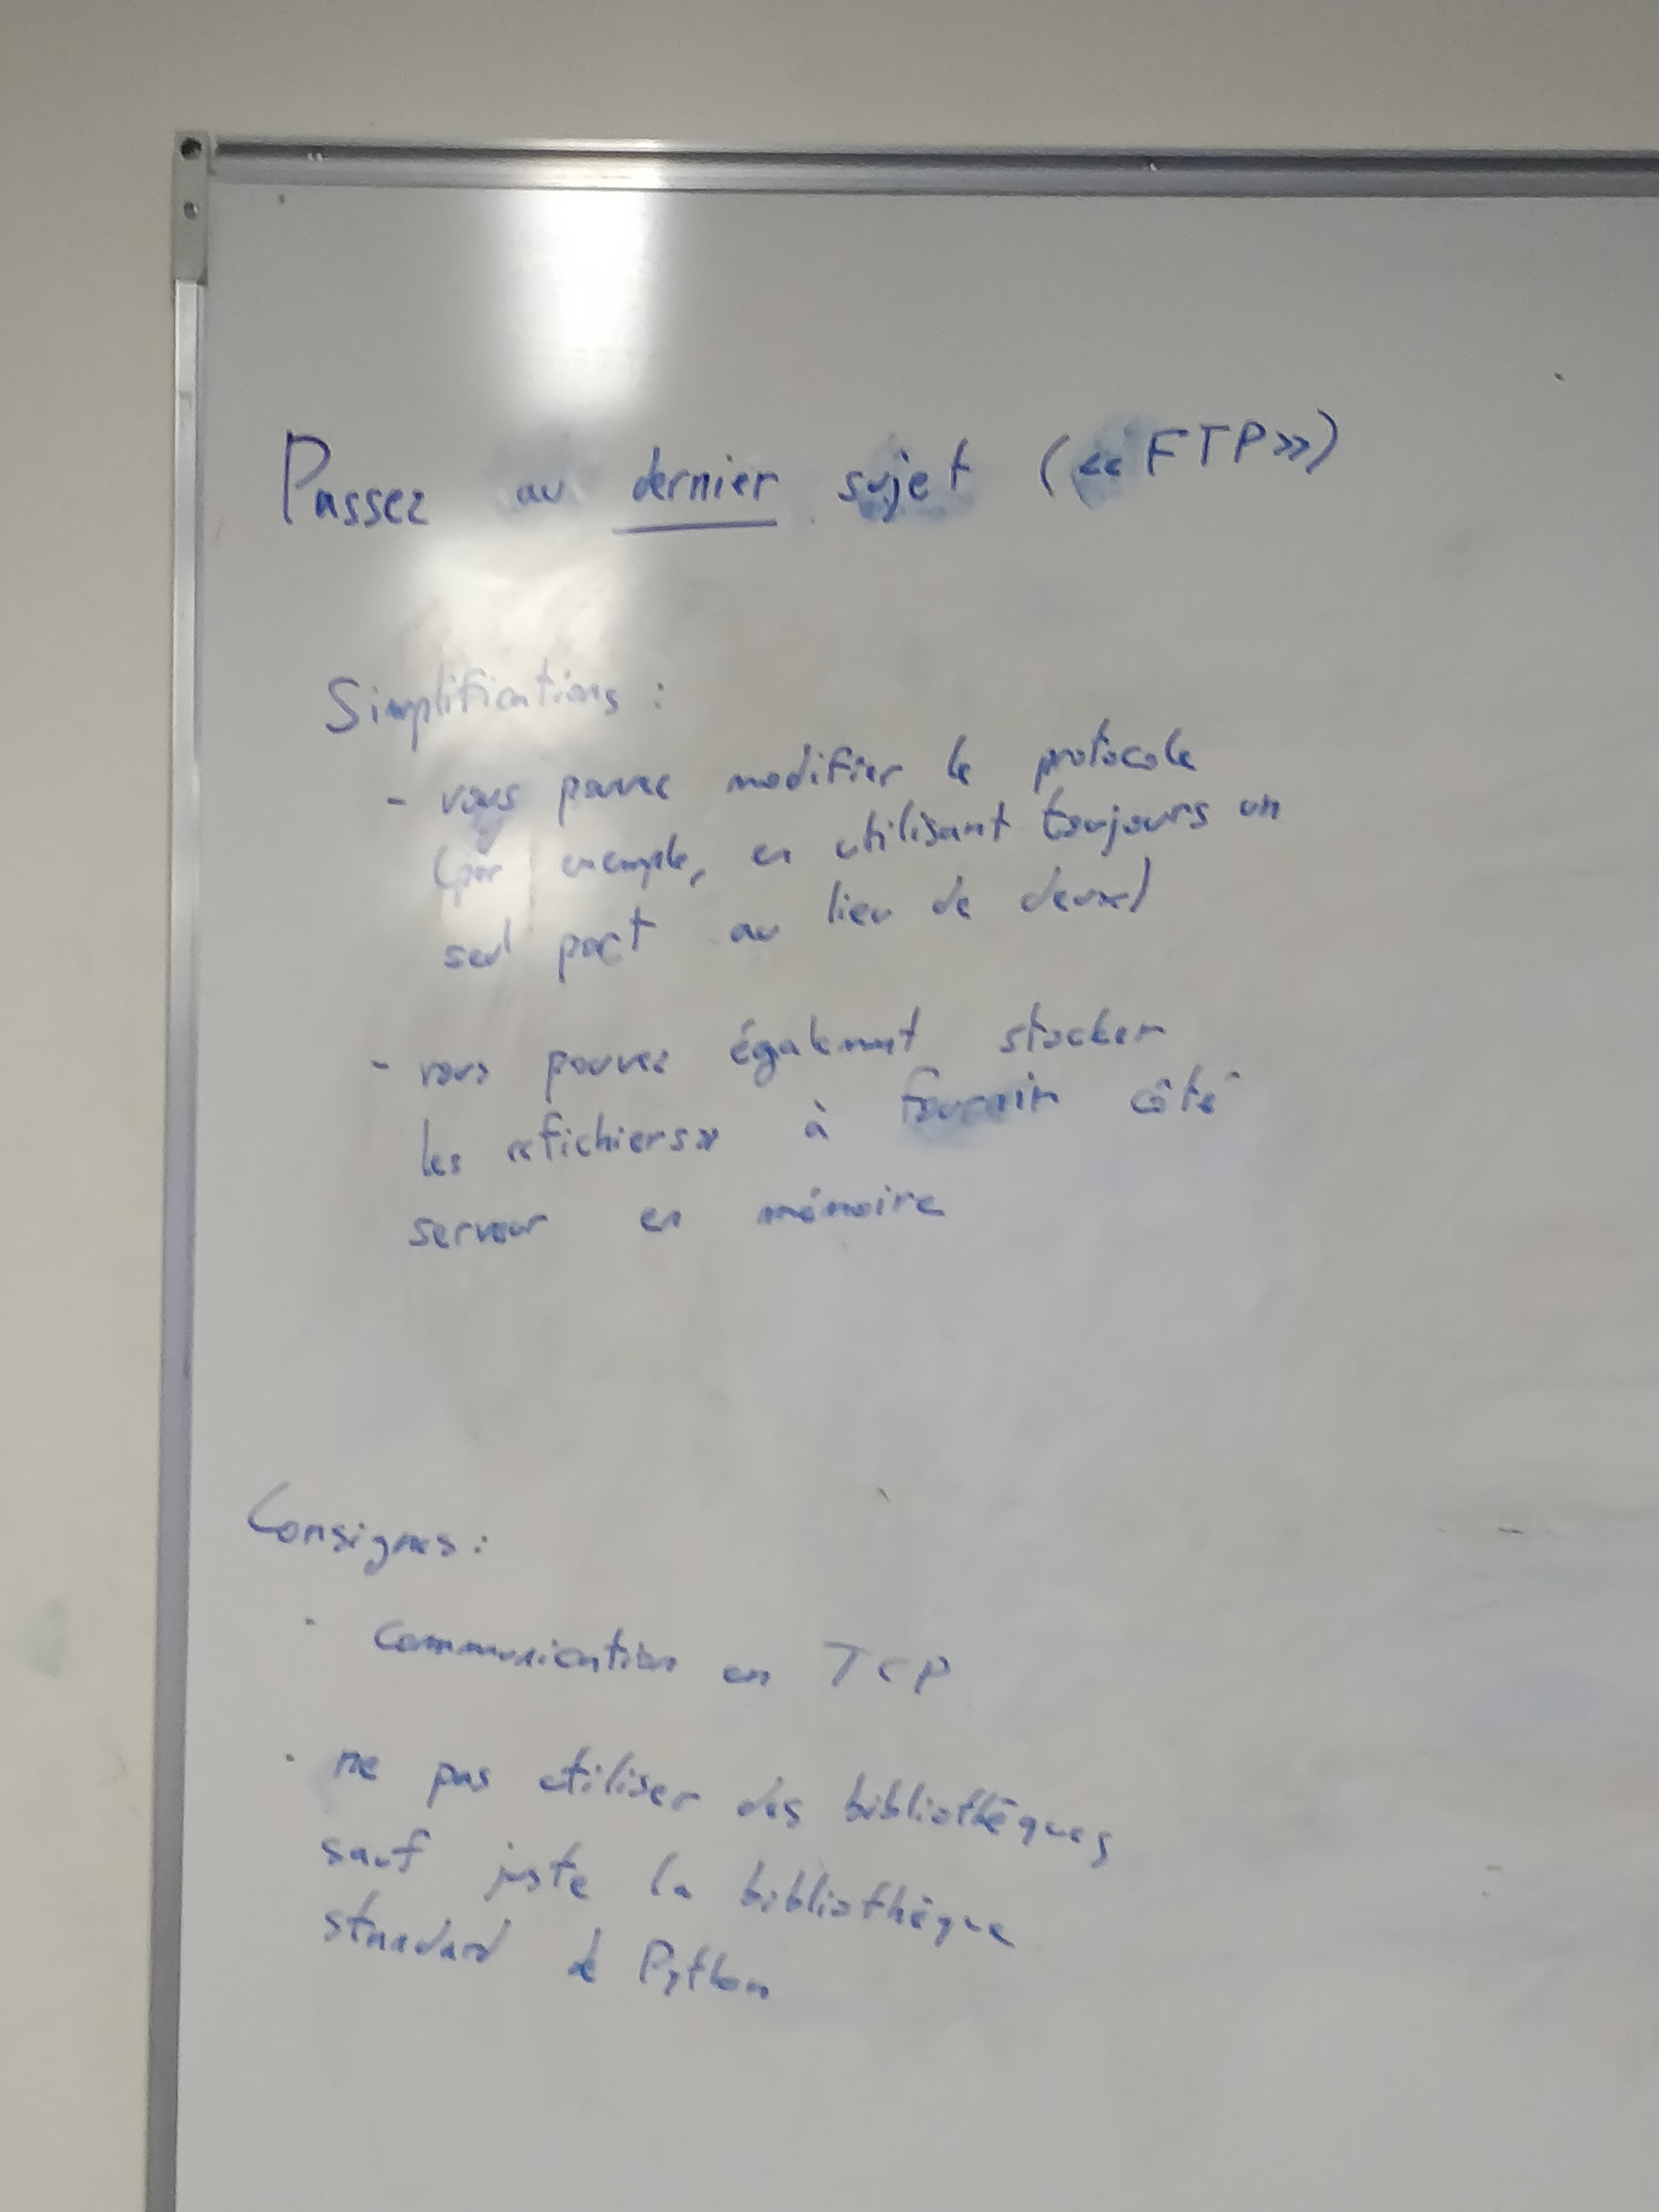 Passez au dernier sujet (« FTP »)
Simplifications :
- vous pouvez modifier le protocole
(par exemple, en utilisant toujours un
seul port au lieu de deux)
- vous pouvez également stocker
les «fichiers» à fournir côté
serveur en mémoire
Consignes :
· Communication en TCP
· ne pas utiliser des bibliothèques
sauf juste la bibliothèque
standard de Python